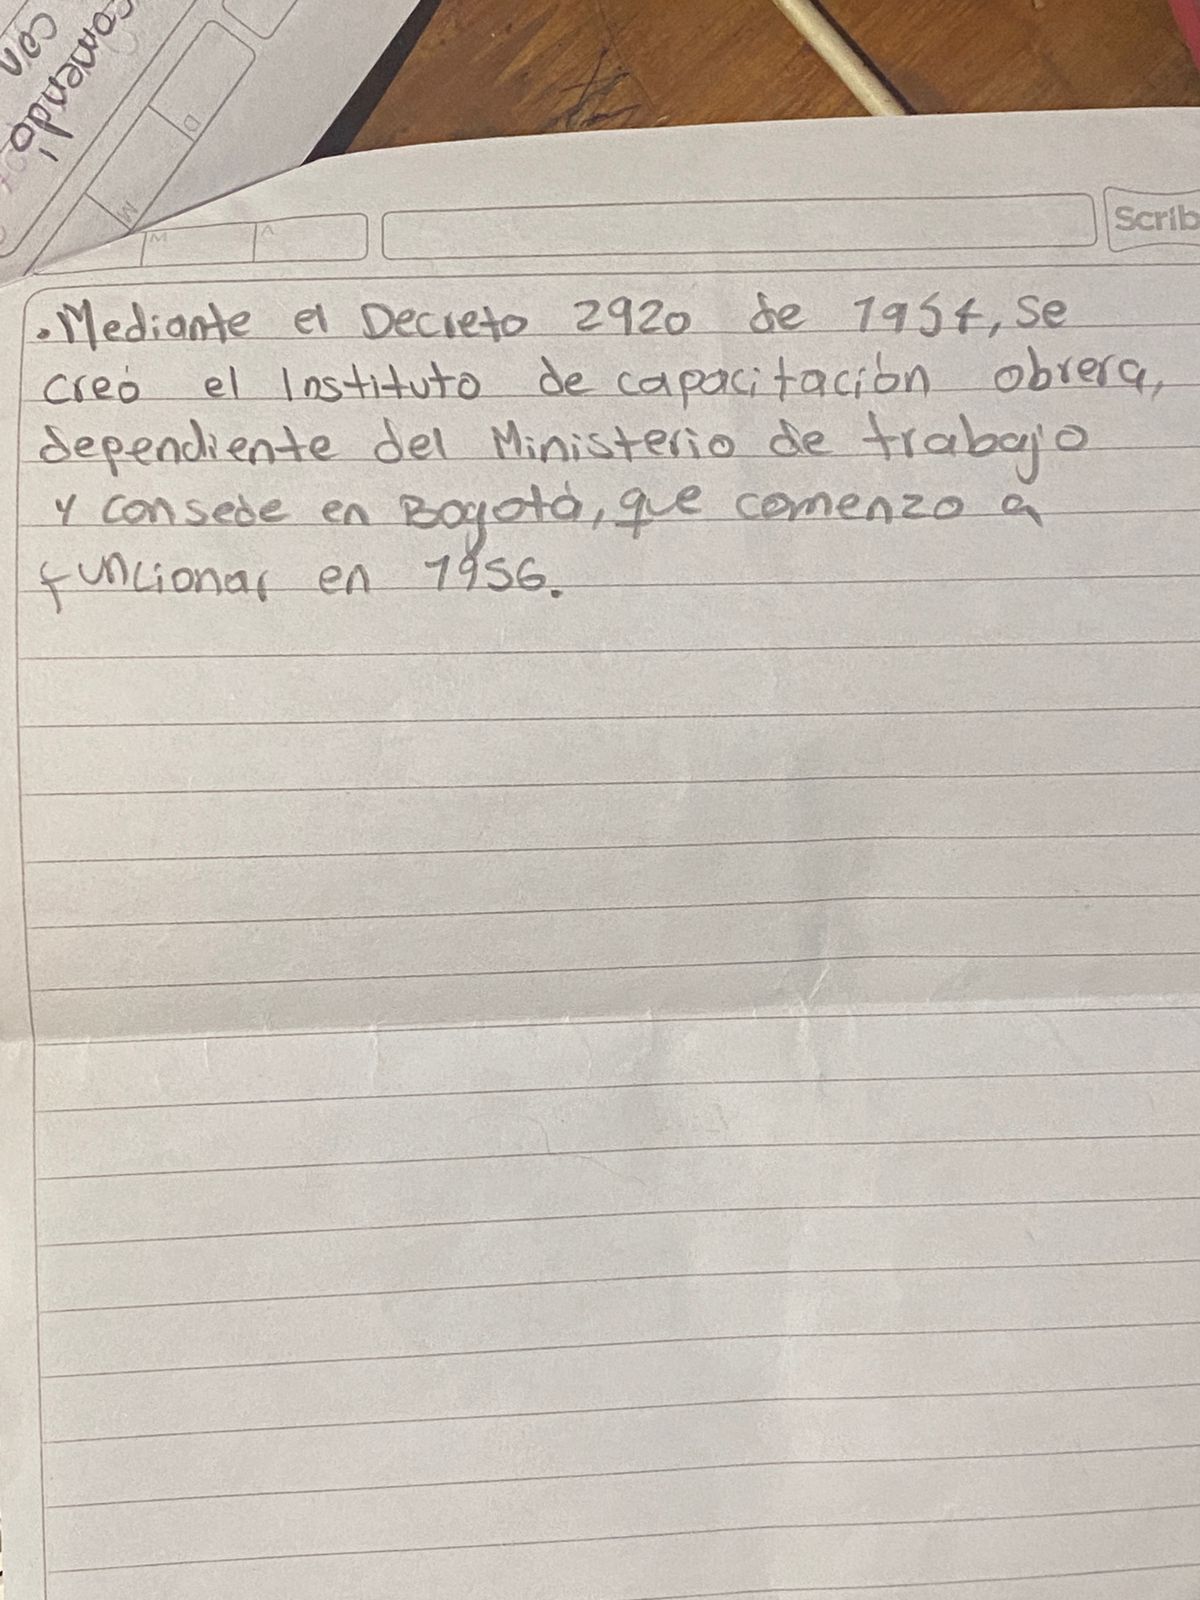 con
comendo
D
M
M
A
Scrib
. Mediante el Decreto 2920 de 1954, se
creó el Instituto de capacitación obrera,
dependiente del Ministerio de trabajo
Y con sede en Bogotá, que comenzo a
funcionar en 1956.